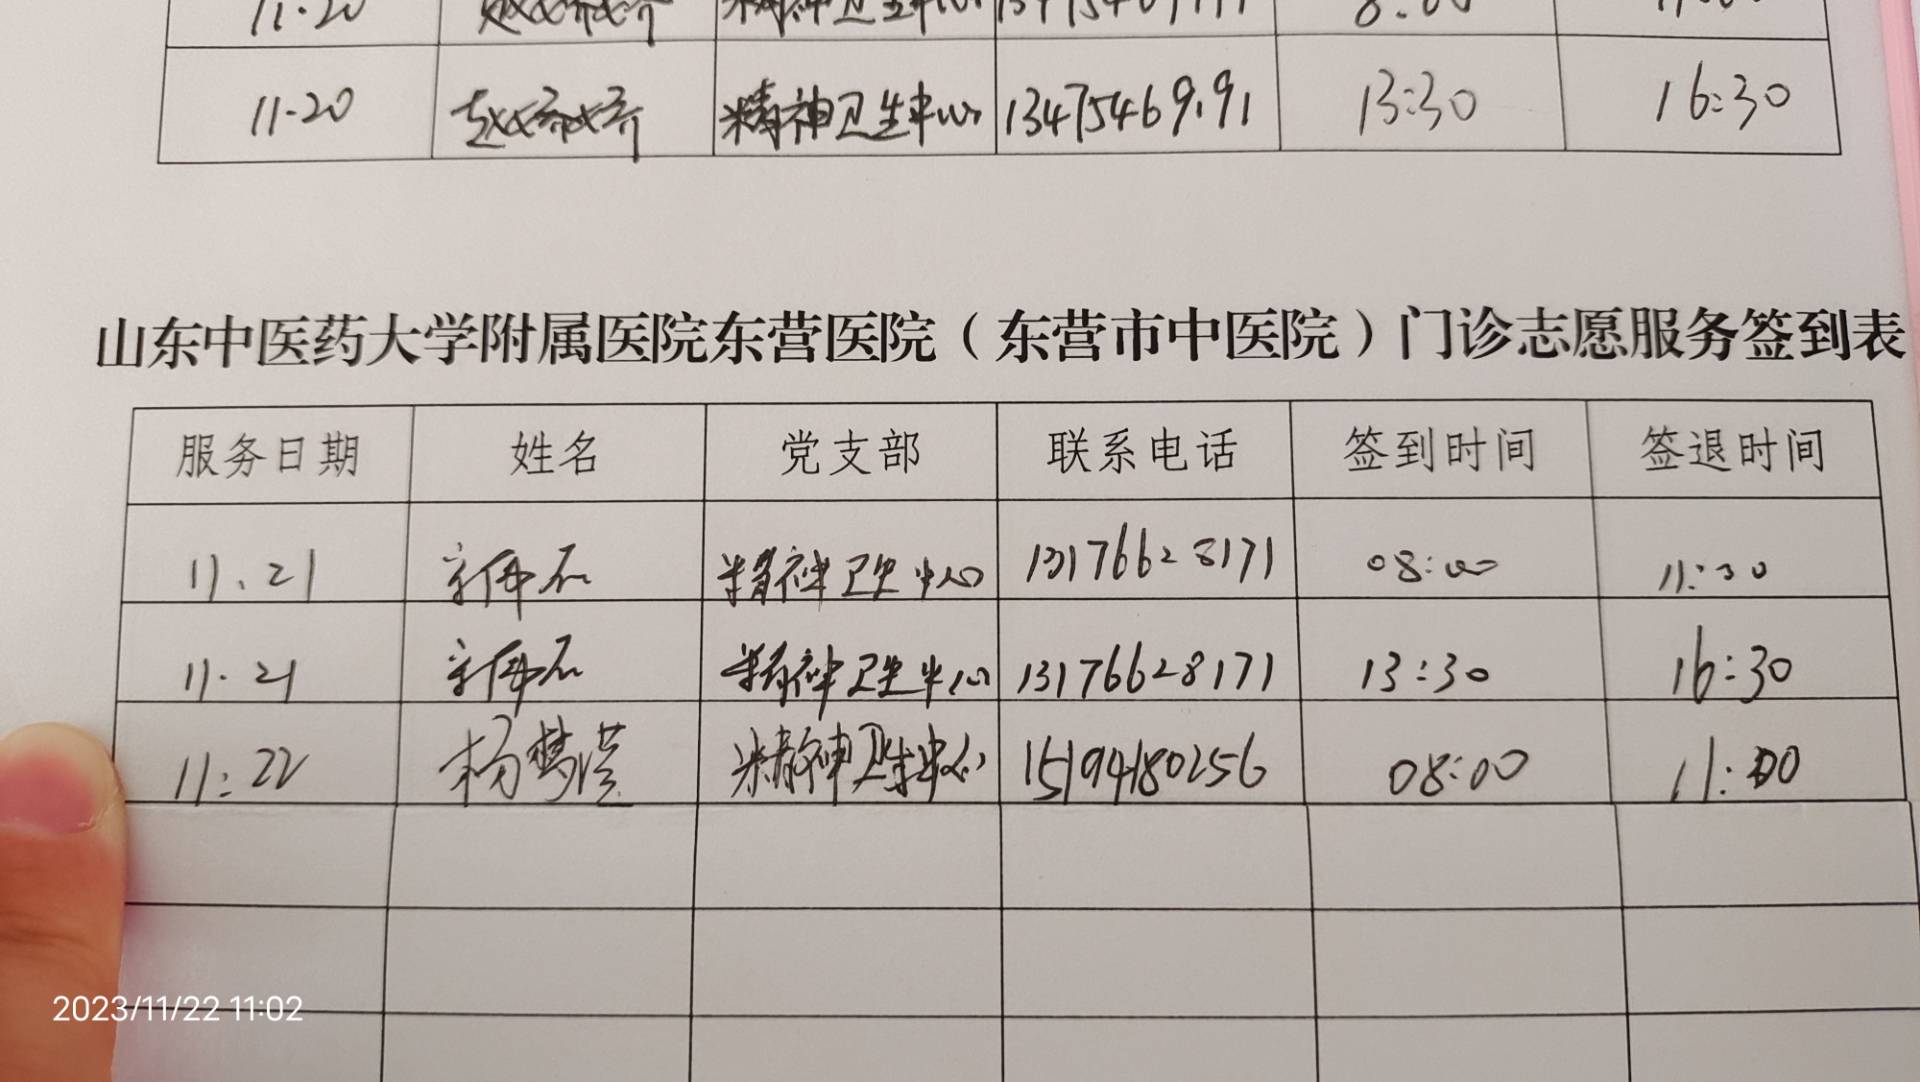 11.20 精神卫生中心 8:00
11.20 精神卫生中心 13475469191 13:30 16:30
山东中医药大学附属医院东营医院（东营市中医院）门诊志愿服务签到表
服务日期 姓名 党支部 联系电话 签到时间 签退时间
11.21 精神卫生中心 13176628171 08:00 11:30
11.21 精神卫生中心 13176628171 13:30 16:30
11:22 杨梦滢 精神卫生中心 15194180256 08:00 11:00
2023/11/22 11:02